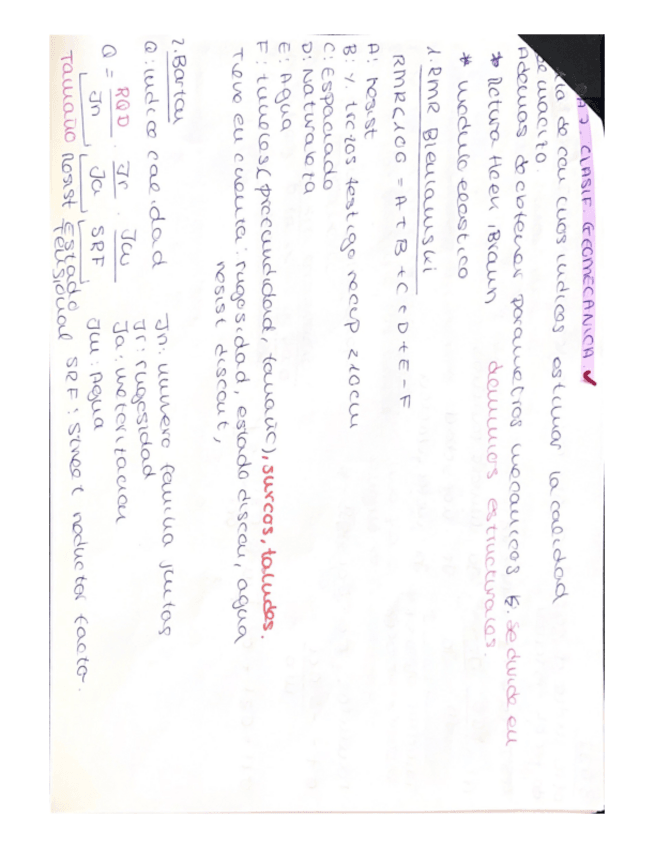 A7. CLASIF. GEOMECANICA ✓
de con unos indices estimar la calidad
de macizo.
Ademas de obtener parametros mecanicos. Se divide en
* Rotura Hoek, Braun dominios estructurales.
* modulo elastico
1. RMR Bieniawski
RMR<100 = A + B + C + D + E - F
A: Resist
B: % trozos testigo recup ≥10cm
C: Espaciado
D: Naturaleza
E: Agua
F: tuneles (profundidad, tamaño), surcos, taludes.
Tiene en cuenta: rugosidad, estado discon, agua
resist discont,
2. Barton
Q: indice calidad
Q = RQD/Jn · Jr/Ja · Jw/SRF
Tamaño Resist Estado Tensional
Jn: numero familia juntas
Jr: rugosidad
Ja: meteorizacion
Jw: Agua
SRF: Street reductor facto.